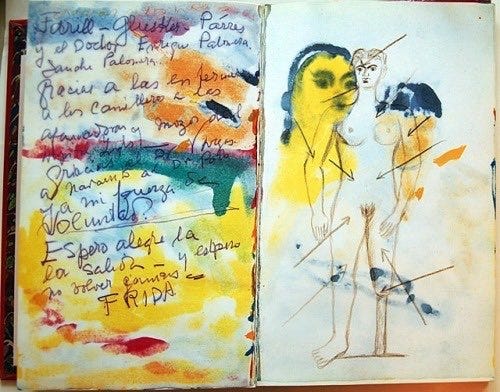 Farill – Glusker – Párres
y el Doctor Enrique Palomera
Sanchez Palomera.
Gracias a las enfermeras
a los camilleros a las
afanadoras y mozos del
Gracias al Dr
a Navarro
y a mi fuerza de
Voluntad.
Espero alegre la
la salida – y espero
no volver jamás –
FRIDA